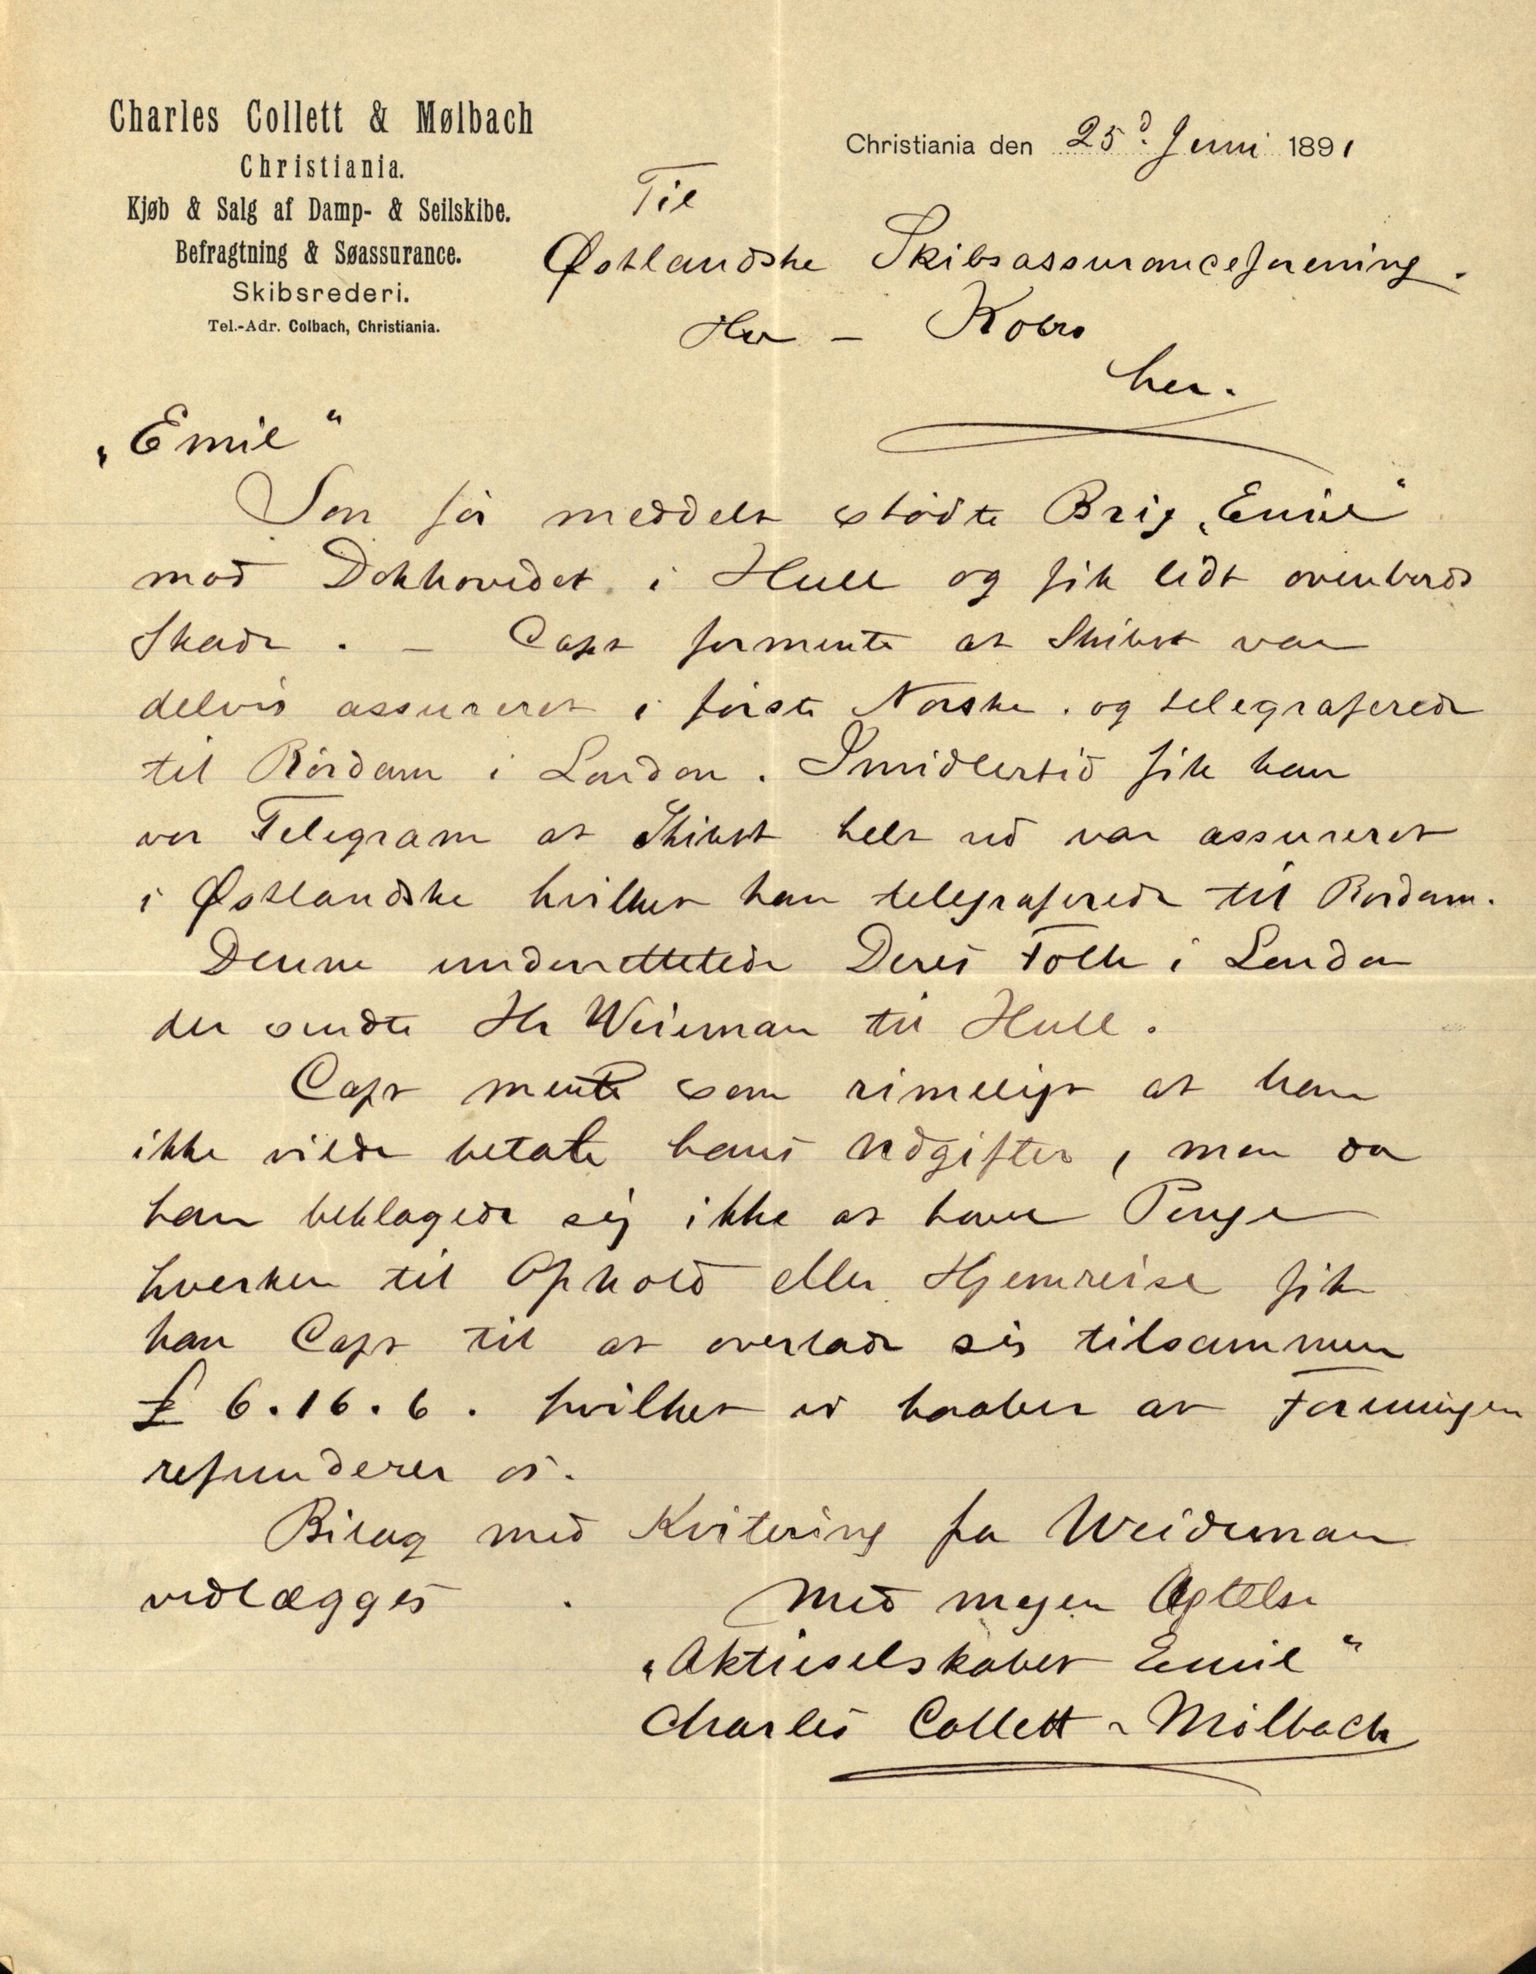 Charles Collett & Mølbach
Christiania.
Kjøb & Salg af Damp- & Seilskibe.
Befragtning & Søassurance.
Skibsrederi.
Tel.-Adr. Colbach, Christiania.
Christiania den 25d. Juni 1891
Til
Østlandske Skibsassuranceforening.
Her –
her.
„Emil"
Som før meddelt stødte Brig „Emil"
mod Dokhovedet i Hull og fik lidt ovenbords
Skade. – Capt formente at Skibet var
delvis assureret i første Norske. og telegraferede
til Rørdam i London. Imidlertid fik han
vor Telegram at Skibet helt ud var assureret
i Østlandske hvilket han telegraferede til Rørdam.
Denne underrettetede Deres Folk i London
der sendte Hr Weieman til Hull.
Capt mente som rimeligt at han
ikke vilde betale hans Udgifter, men da
han beklagede sig ikke at have Penge
hverken til Ophold eller Hjemreise fik
han Capt til at overlade sig tilsammen
£ 6.16.6. hvilket vi haaber at Foreningen
refunderer os.
Bilag med Kvitering fra Weideman
vedlægges.
Med megen Agtelse
„Aktieselskabet Emil"
Charles Collett & Mølbach